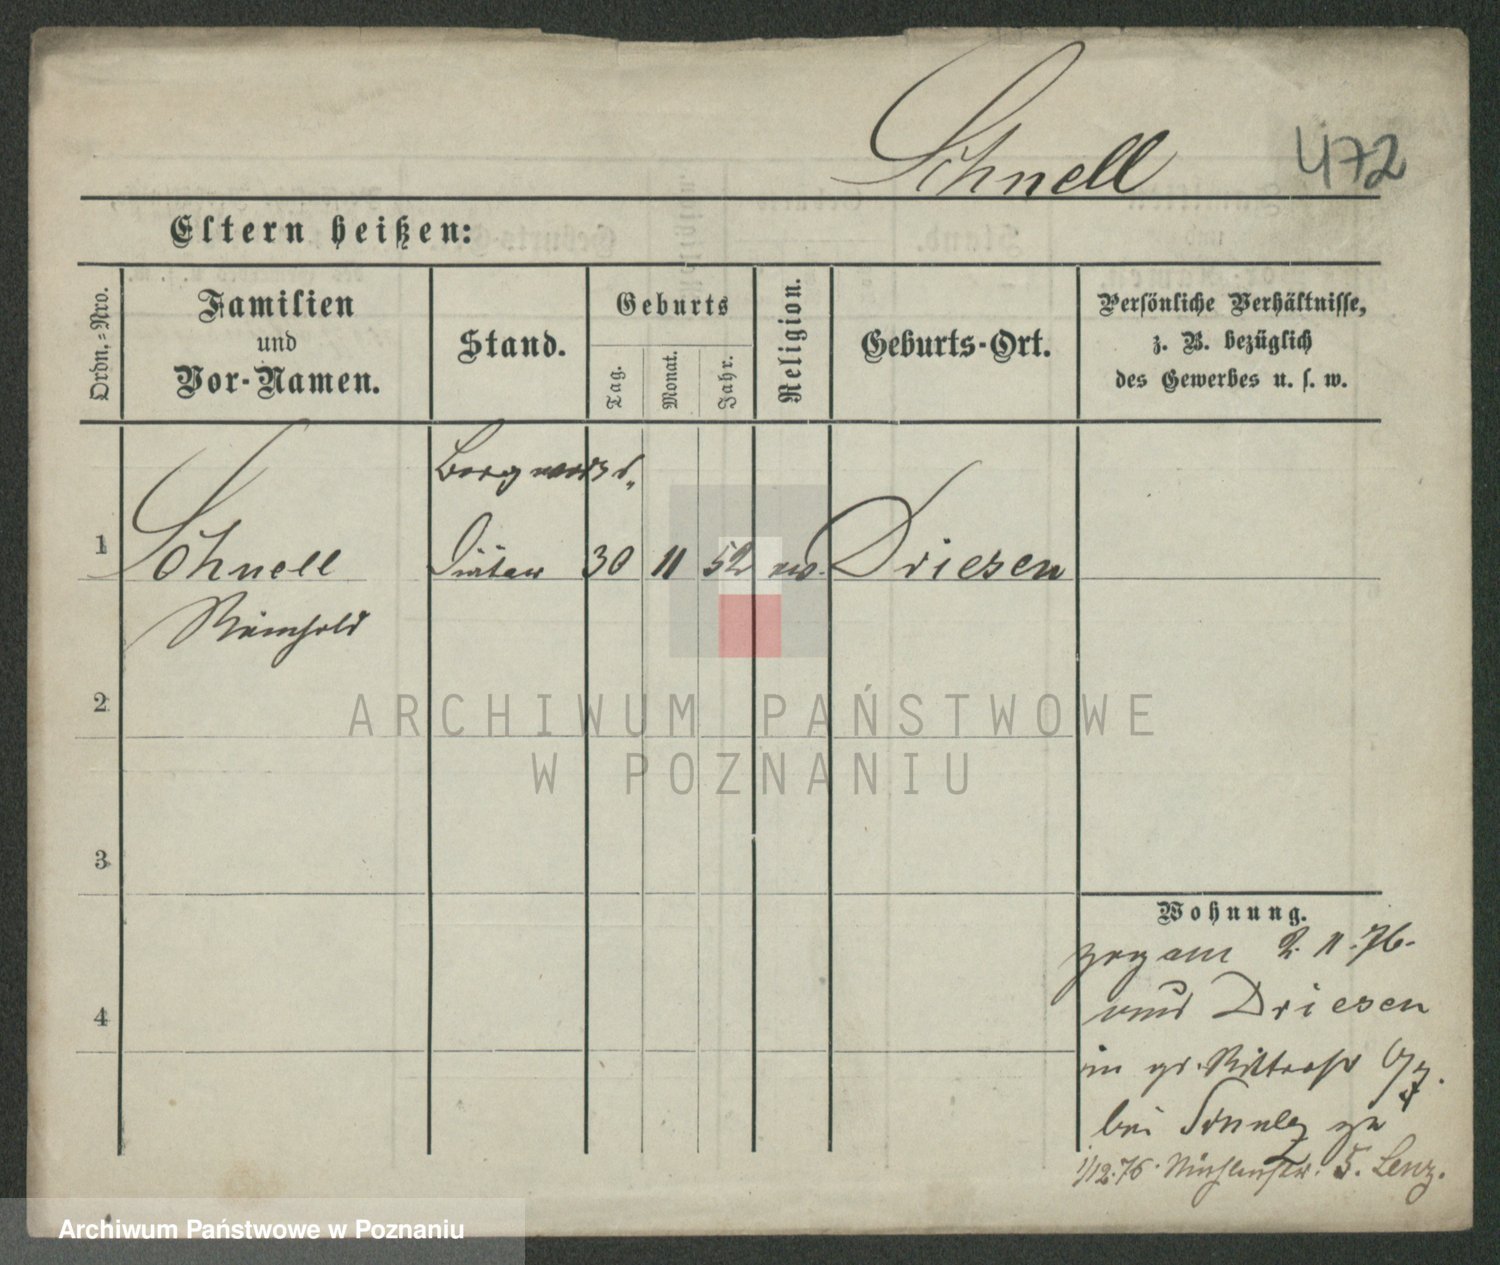 Schnell 472
Eltern heißen:
Ordn.-Nro.
Familien
und
Vor-Namen.
Stand.
Geburts
Tag.
Monat.
Jahr.
Religion.
Geburts-Ort.
Persönliche Verhältnisse,
z. B. bezüglich
des Gewerbes u. s. w.
1 Schnell 30 11 52 Driesen
Reinhold
2
3
4
Wohnung.
am 2. 11. 76.
Driesen
in gr. Ritterstr
bei
1/12. 76. Mühlenstr. 5. Lenz.
ARCHIWUM PAŃSTWOWE
W POZNANIU
Archiwum Państwowe w Poznaniu